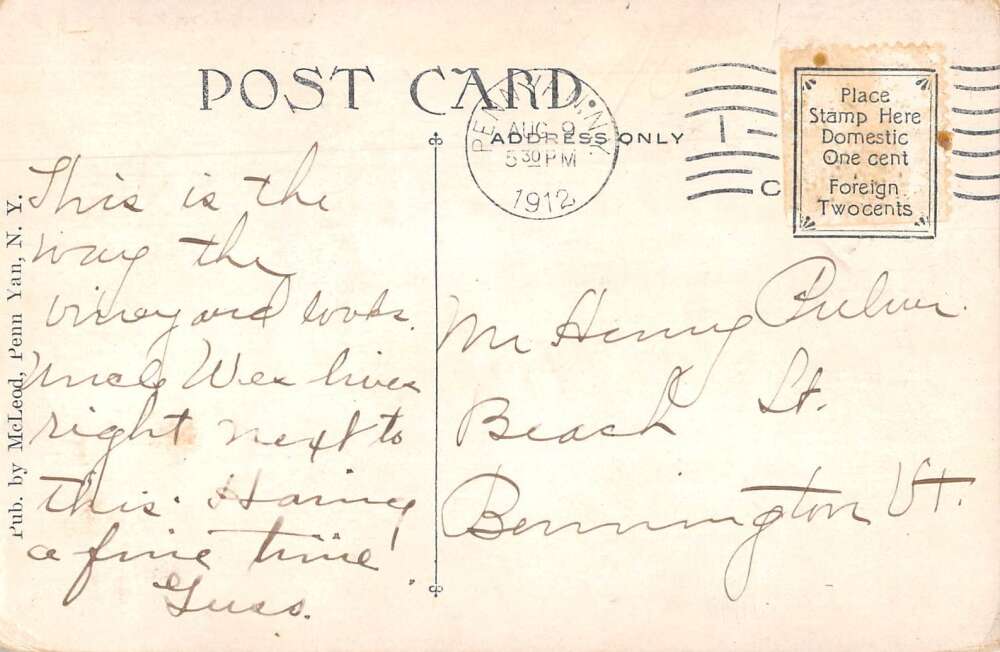 POST CARD
ADDRESS ONLY
PENN YAN N.Y.
AUG 9
5 30 PM
1912
Place
Stamp Here
Domestic
One cent
Foreign
Two cents
This is the
way the
vineyard looks.
Uncle Wes lives
right next to
this. Having
a fine time
Guss.
Mr Henry Culver.
Beach St.
Bennington Vt.
Pub. by McLeod, Penn Yan, N. Y.